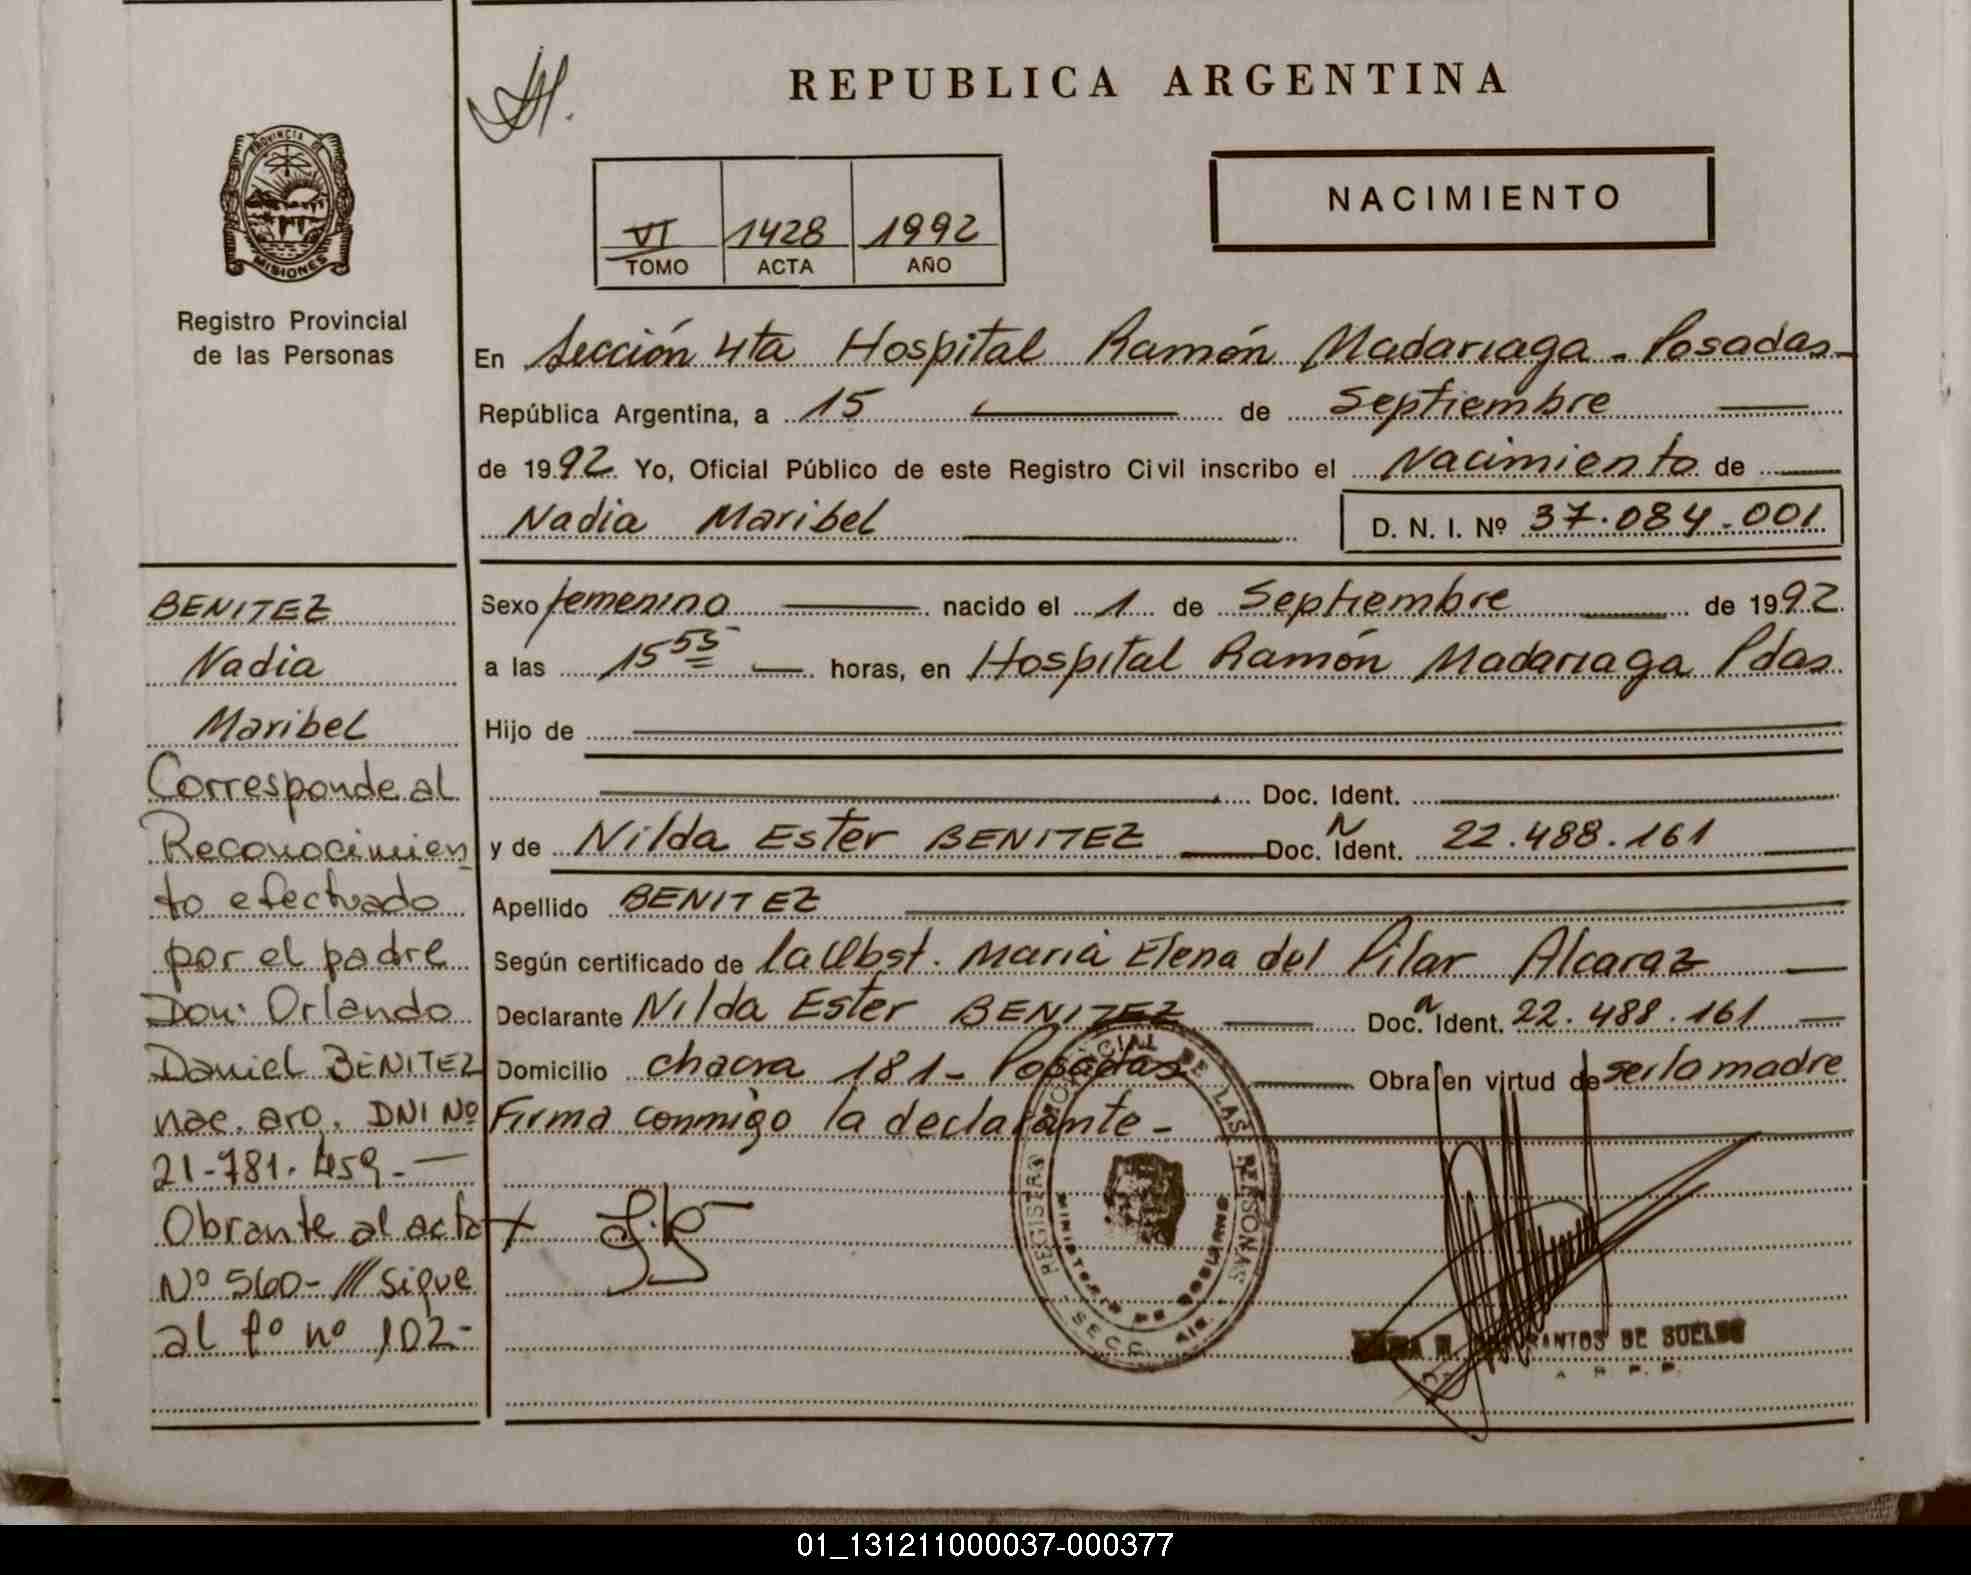 REPUBLICA ARGENTINA
PROVINCIA DE
MISIONES
Registro Provincial
de las Personas
VI 1428 1992
TOMO ACTA AÑO
NACIMIENTO
En Sección 4ta Hospital Ramón Madariaga - Posadas-
República Argentina, a 15 de Septiembre
de 1992. Yo, Oficial Público de este Registro Civil inscribo el Nacimiento de
Nadia Maribel D. N. I. Nº 37.084.001
Sexo femenino nacido el 1 de Septiembre de 1992.
a las 15 55 horas, en Hospital Ramón Madariaga Pdas.
Hijo de
Doc. Ident.
y de Nilda Ester BENITEZ Doc. N Ident. 22.488.161
Apellido BENITEZ
Según certificado de la Obst. Maria Elena del Pilar Alcaraz
Declarante Nilda Ester BENITEZ Doc. n Ident. 22.488.161
Domicilio chacra 181- Posadas Obra en virtud de ser la madre
Firma conmigo la declarante-
BENITEZ
Nadia
Maribel
Corresponde al
Reconocimien
to efectuado
por el padre
Don: Orlando
Daniel BENITEZ
nac. arg. DNI Nº
21-781.459.-
Obrante al acta
Nº 560-/// Sigue
al fº nº 102-
REGISTRO PROVINCIAL DE LAS PERSONAS
MINISTERIO DE GOBIERNO
SECC.
DE SUELDO
01_131211000037-000377